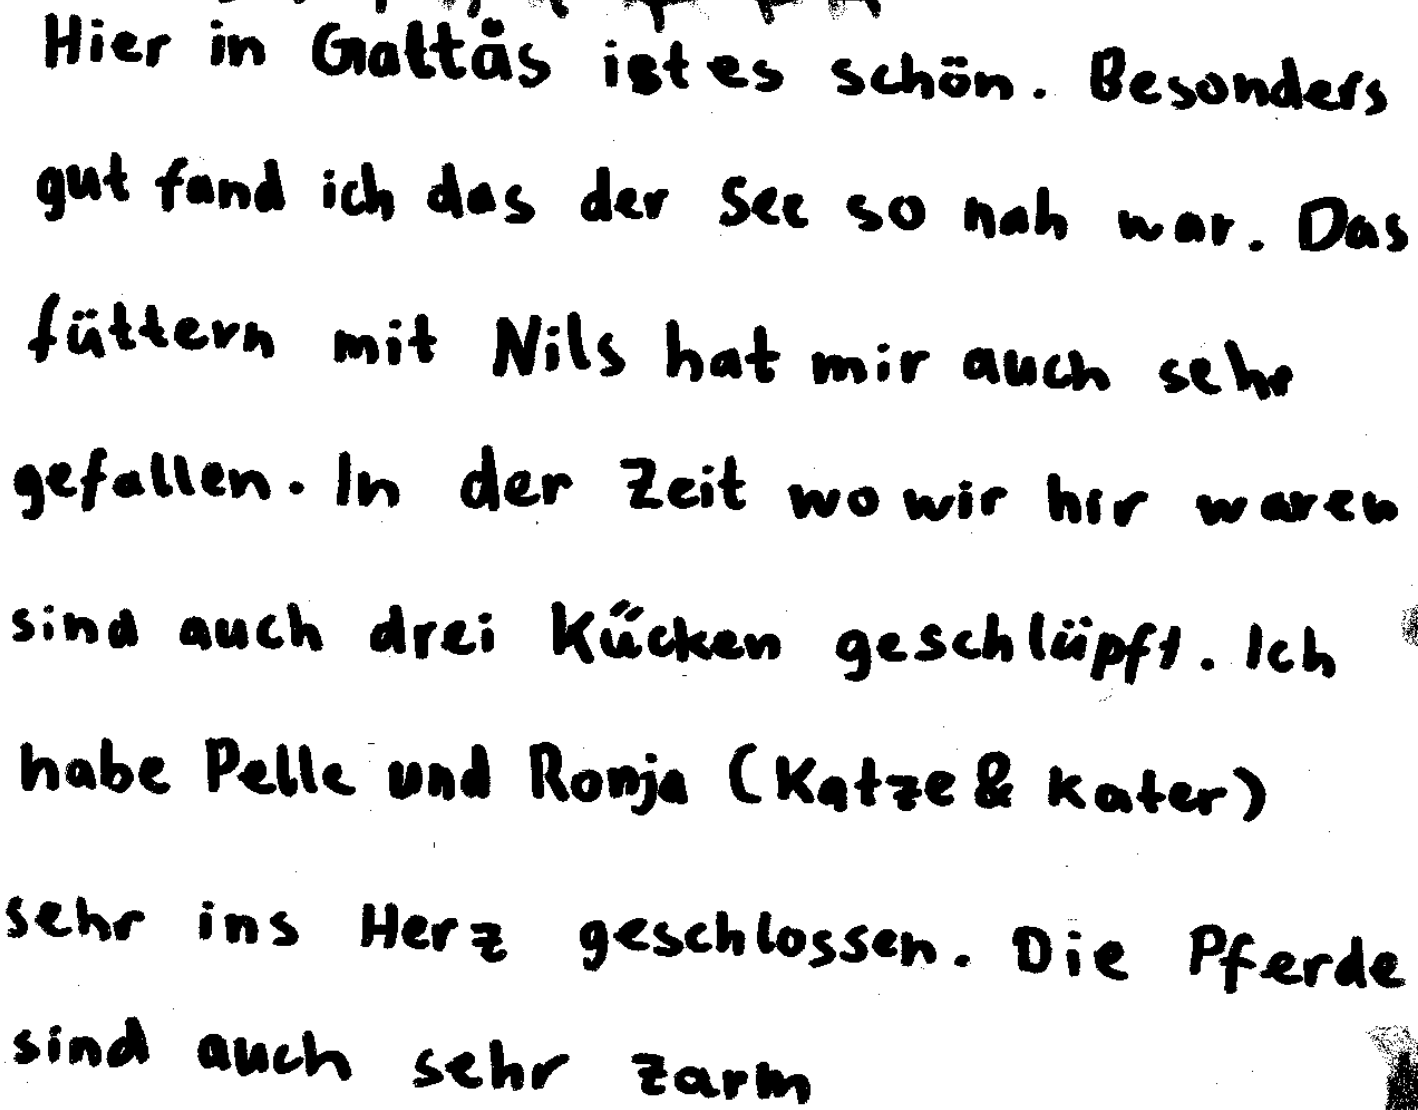 Hier in Gattås ist es schön. Besonders
gut fand ich das der See so nah war. Das
füttern mit Nils hat mir auch sehr
gefallen. In der Zeit wo wir hir waren
sind auch drei Kücken geschlüpft. Ich
habe Pelle und Ronja (Katze & Kater)
sehr ins Herz geschlossen. Die Pferde
sind auch sehr zarm